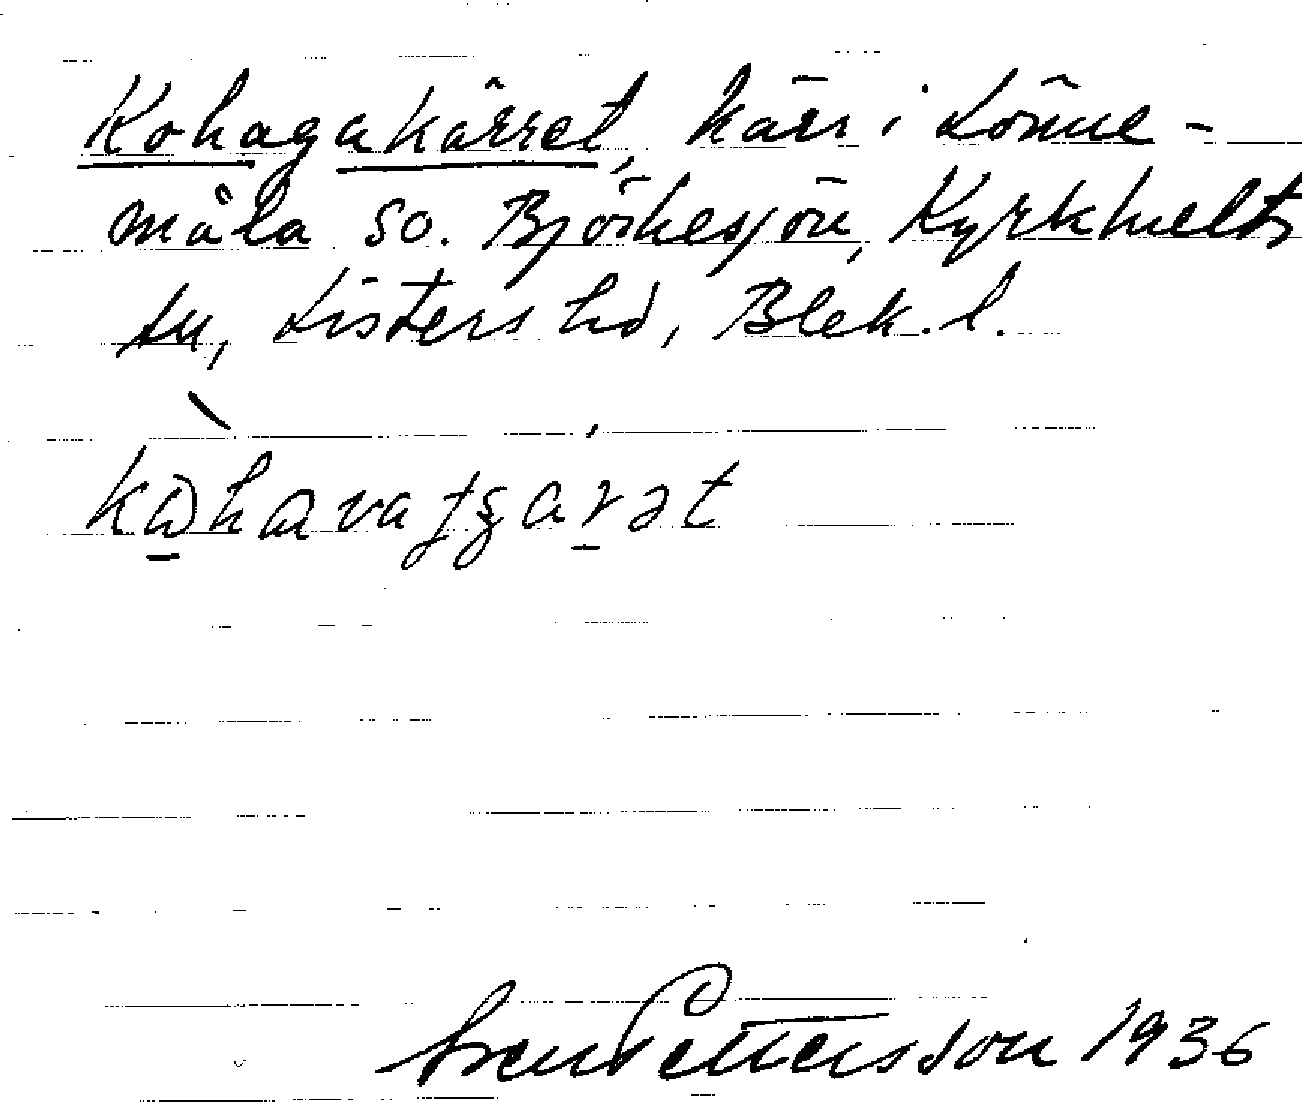 Kohagakärret, kärr i Lönne-
måla so. Björkesjön, Kyrkhults
sn, Listers hd, Blek. l.
Sven Pettersson 1936